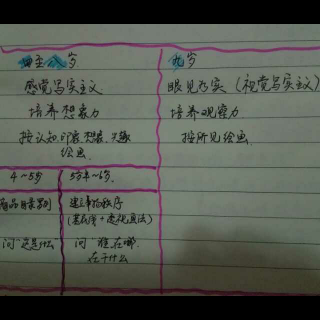 四至八岁
感觉写实主义
培养想象力
按认知、印象、想象、兴趣
绘画
九岁
眼见为实（视觉写实主义）
培养观察力
按所见绘画
4～5岁
问“这是什么
5岁半～6岁
建立事物秩序
（基底线+透视画法）
问“谁在哪
在干什么